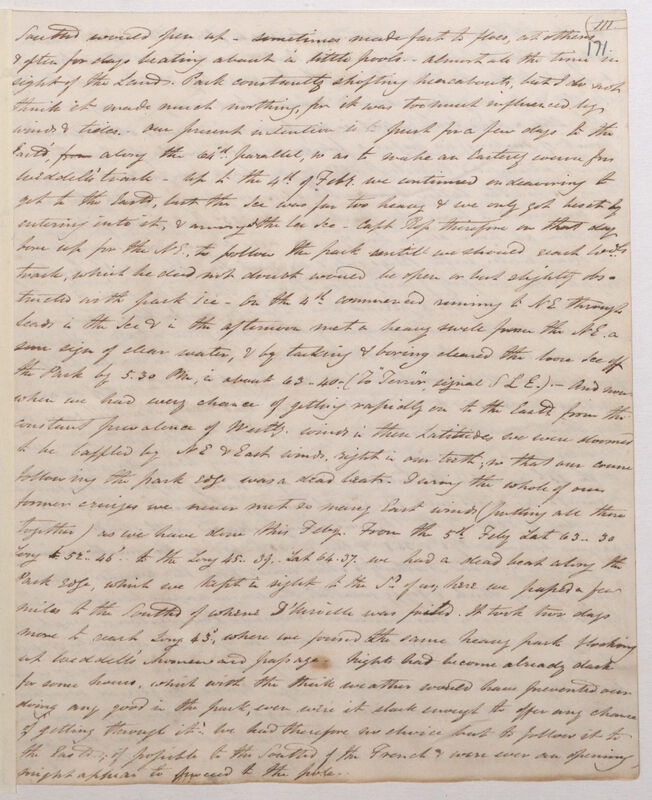 111
171.
Southd would open up - sometimes made fast to floes, at others
& often for days beating about in little pools - almost all the time in
sight of the Land. Pack constantly shifting hereabouts, but I do not
think it made much northing, for it was too much influenced by
winds & tides. - Our present intention is to push for a few days to the
Eastd, from along the 64th parallel, so as to make an Easterly course for
Weddell's track - Up to the 4th of Feby. we continued endeavouring to
get to the Eastd, but the Ice was far too heavy & we only got beset by
entering into it, & amongst the loose Ice - Capt Ross therefore on that day
bore up for the N.E. to follow the pack until we should reach Wedls
track, which he did not doubt would be open or but slightly obs-
tructed with pack ice - On the 4th commenced running to N.E through
leads in the Ice & in the afternoon met a heavy swell from the N.E. a
sure sign of clear water, & by tacking & boring cleared the loose Ice off
the Pack by 5.30 PM, in about 63-40 - (To "Terror" signal S L E.) - And now
when we had every chance of getting rapidly on to the Eastd from the
constant prevalence of Westly. winds in these Latitudes we were doomed
to be baffled by N E & East winds, right in our teeth, so that our course
following the pack edge was a dead beat. During the whole of our
former cruizes we never met so many East winds (putting all there
together) as we have done this Feby. From the 5th Feby Lat 63 - 30
Long 52° 46' - to the Long 45 - 39. Lat 64 - 37. we had a dead beat along the
Pack Edge, which we kept in sight to the Sd of us, here we passed a few
miles to the Southd of where D'Urville was foiled. It took two days
more to reach Long 43°, where we found the same heavy pack blocking
up Weddell's homeward passage. Nights had become already dark
for some hours, which with the thick weather would have prevented our
doing any good in the pack, even were it slack enough to offer any chance
of getting through it. We had therefore no choice but to follow it to
the Eastd, if possible to the Southd of the French & were ever an opening
might appear to proceed to the pole.